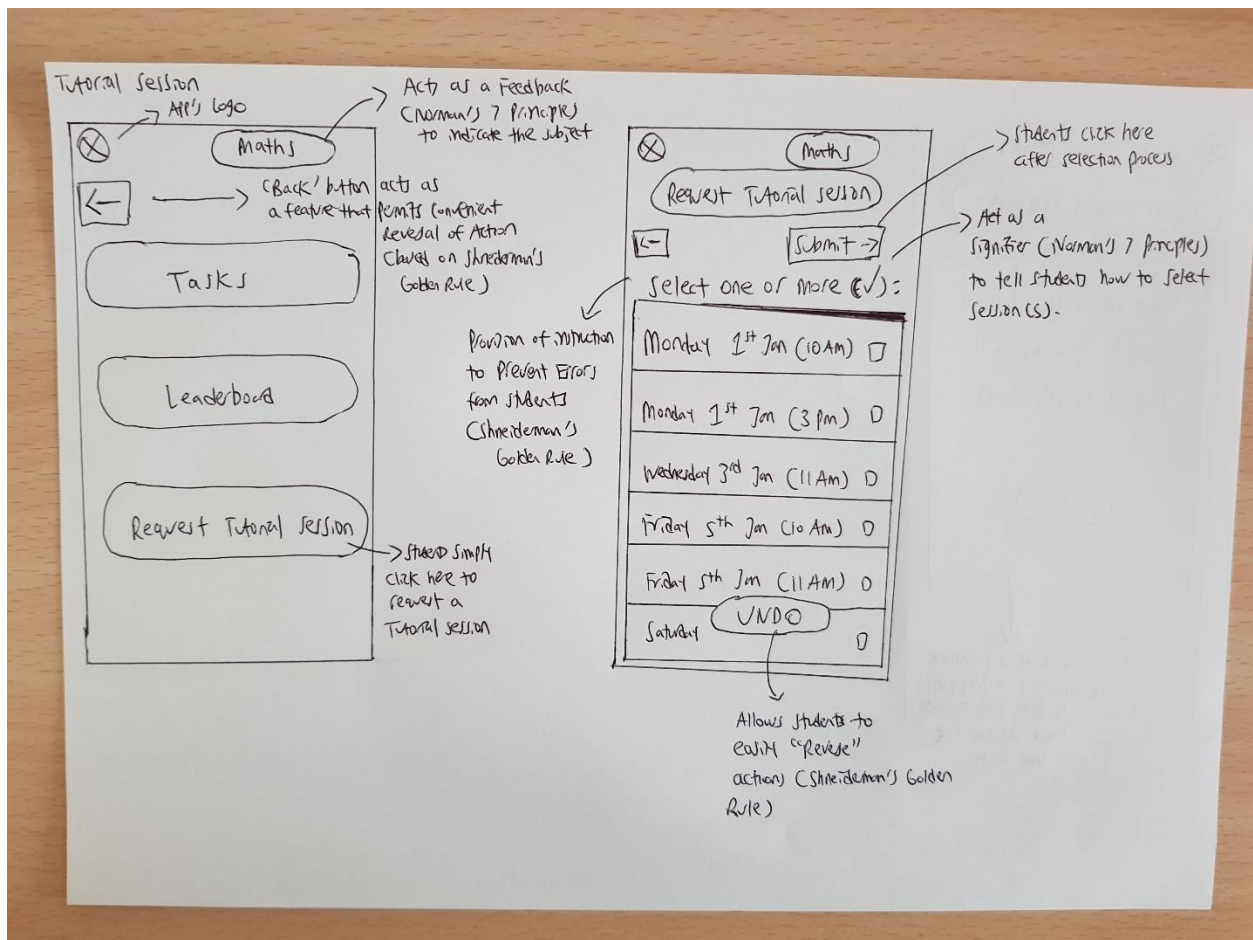 Tutorial session
App's Logo
Acts as a Feedback
(Norman's 7 Principles)
to indicate the subject
Maths
'Back' button acts as
a feature that permits convenient
Reversal of Action
(based on Shneiderman's
Golden Rule)
Tasks
Leaderboard
Request Tutorial session
Students simply
click here to
request a
Tutorial session
Maths
Request Tutorial session
Submit →
Students click here
after selection process
Select one or more (✓):
Act as a
signifier (Norman's 7 Principles)
to tell students how to select
session(s).
Provision of instruction
to Prevent Errors
from students
(Shneiderman's
Golden Rule)
Monday 1st Jan (10 AM)
Monday 1st Jan (3 pm)
Wednesday 3rd Jan (11 AM)
Friday 5th Jan (10 AM)
Friday 5th Jan (11 AM)
Saturday
UNDO
Allows students to
easily "Reverse"
actions (Shneiderman's Golden
Rule)